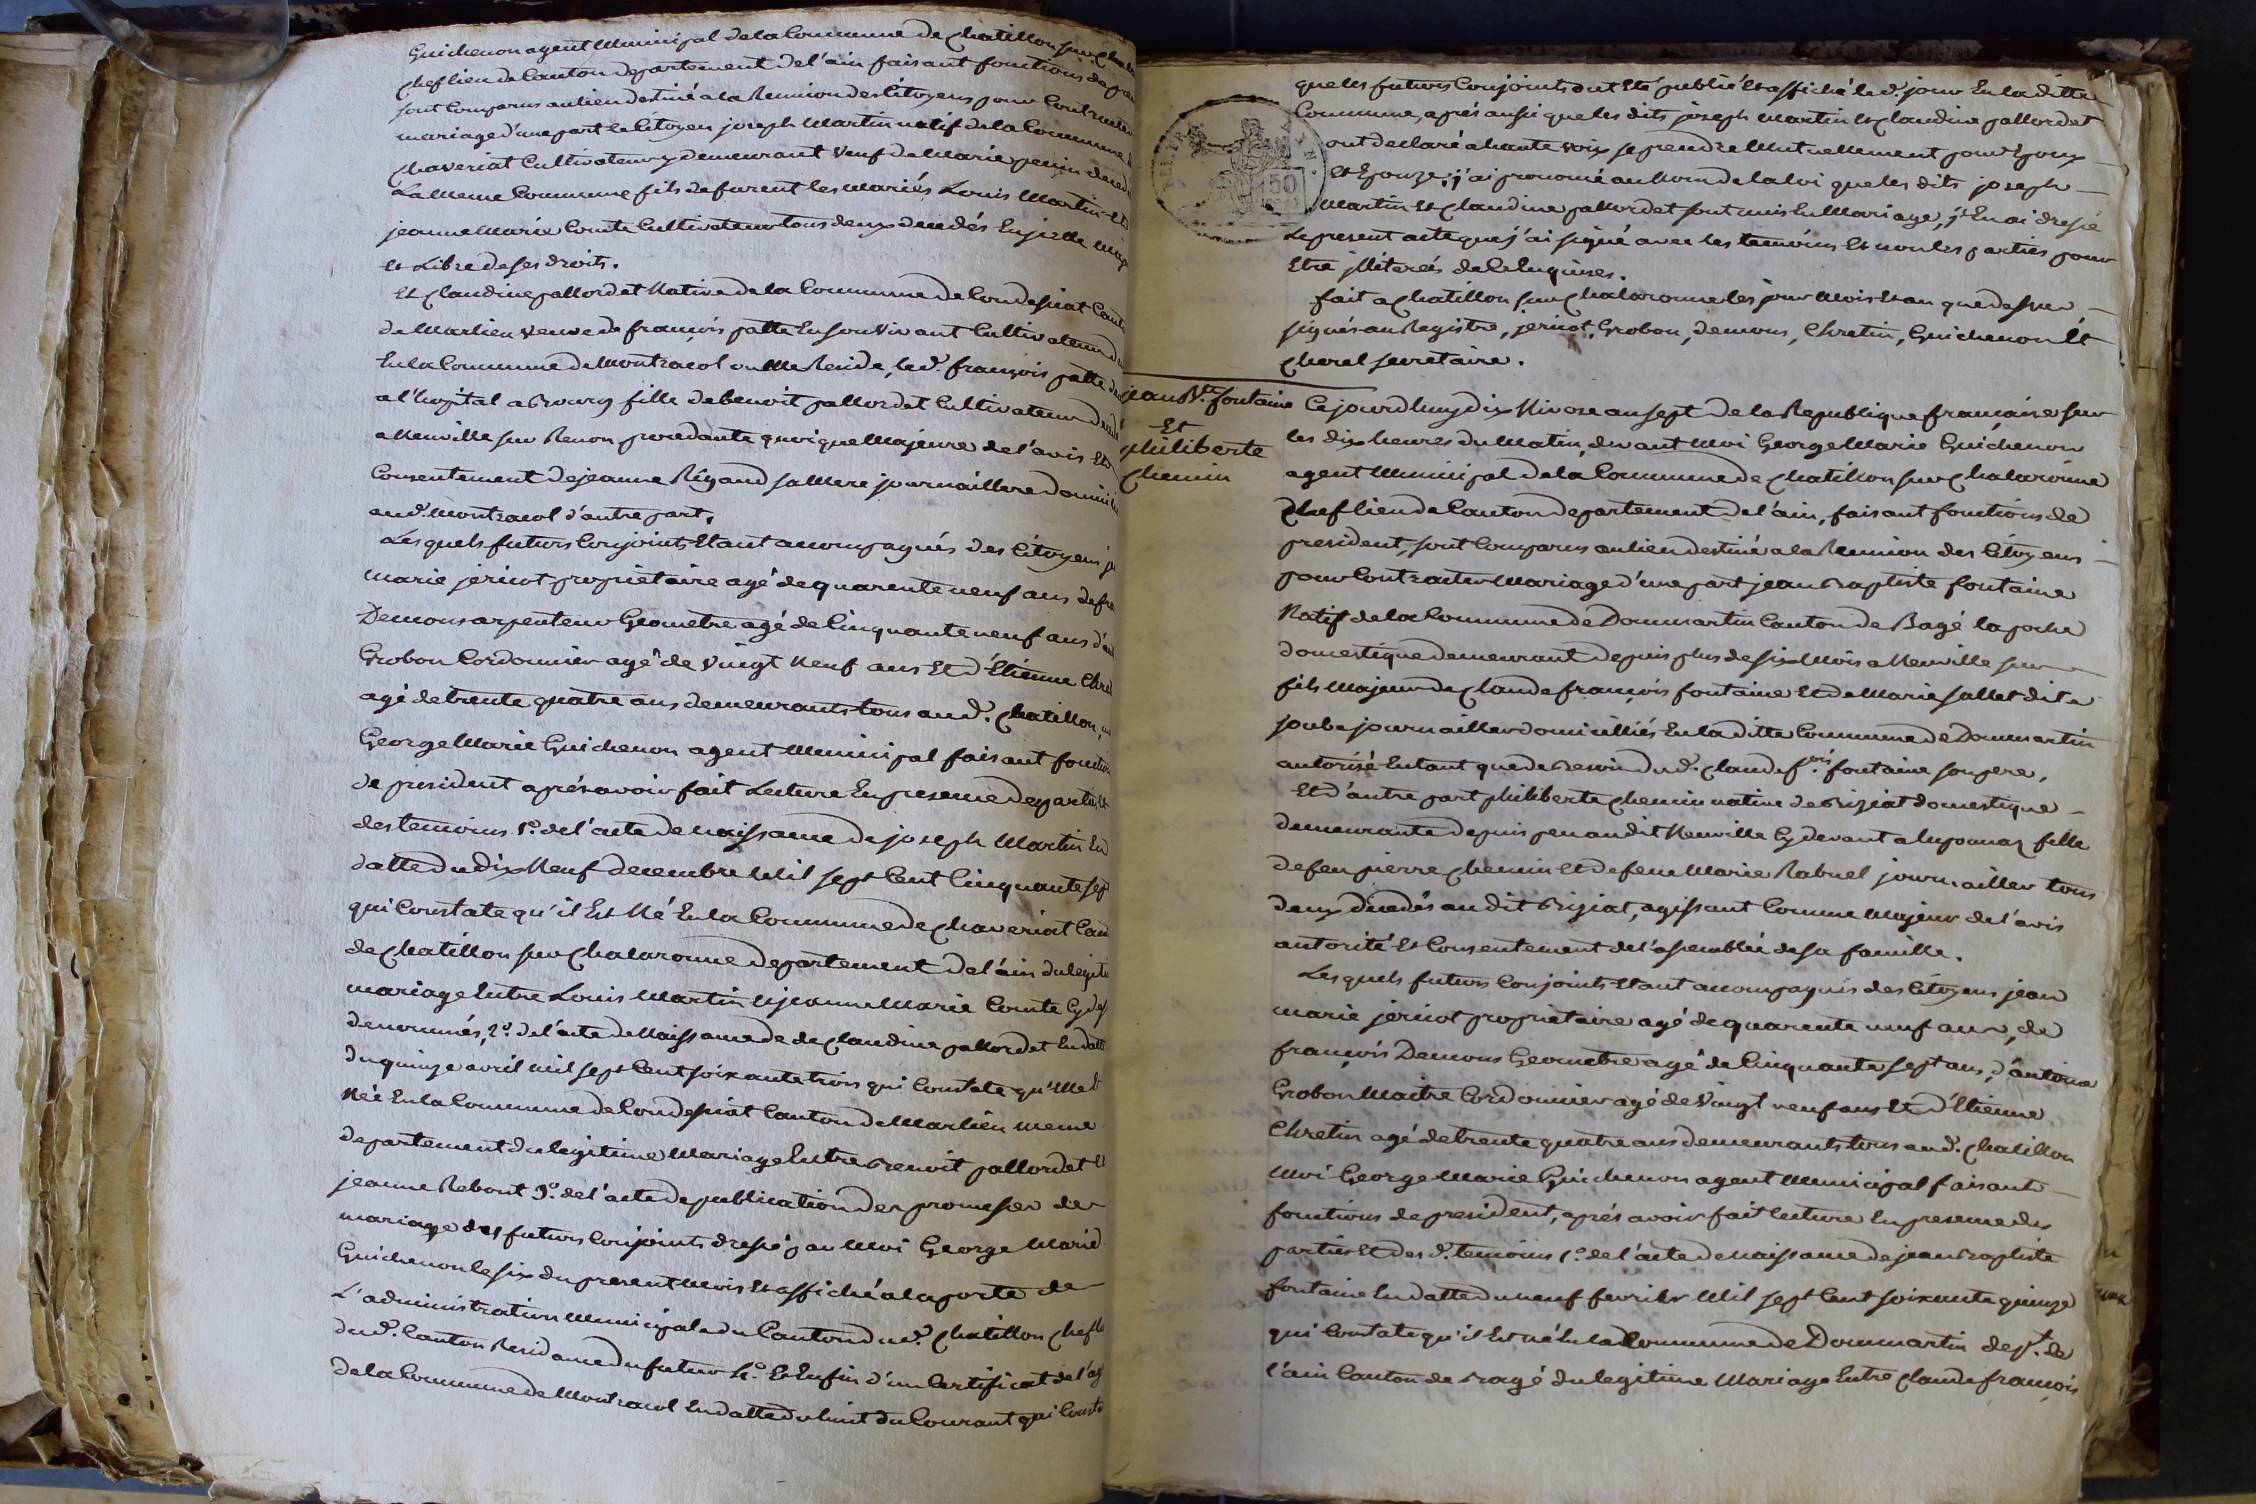 Guichenon agent Municipal dela Commune de Chatillon sur
Chef lieu de Canton departement del'ain faisant fonctions de
sont Comparus au lieu destiné a la Reunion des Citoyens pour Contracter
mariage d'une part le Citoyen joseph Martin natif de la Commune
Chaveriat Cultivateur y demeurant Veuf de Marie
La Meme Commune fils de furent les mariés Louis Martin Et
jeanne Marie Comte Cultivateur tous deux decedés
et Libre de ses droits.
Et Claudine pallordet Native de la Commune de Condessiat
de Marlieu veuve de françois patte En son Vivant Cultivateur
En la Commune de Montracol ou Elle Reside, led. françois patte
a l'hopital a Bourg fille de benoit pallordet Cultivateur
a Neuville sur Renon procedante quoique Majeure de l'avis Et
Consentement de jeanne Rigaud sa Mere journailliere
aud. Montracol d'autre part,
Lesquels futurs Conjoints Etant accompagnés des Citoyens
Marie jericot proprietaire agé de quarente neuf ans de
Demons arpenteur Geometre agé de Cinquante neuf ans
Grobon Cordonnier agé de Vingt Neuf ans Et d'Etienne
agé de trente quatre ans demeurants tous aud. Chatillon,
George Marie Guichenon agent Municipal faisant
de president aprés avoir fait Lecture En presence de
des temoins 1°. de l'acte de naissance de joseph Martin En
datte du dix Neuf decembre Mil sept Cent Cinquante sept
qui Constate qu'il Est Né En la Commune de Chaveriat
de Chatillon sur Chalaronne departement de l'ain du
mariage Entre Louis Martin Et jeanne Marie Comte
denommés, 2°. de l'acte de Naissance de de Claudine pallordet
du quinze avril mil sept Cent soixante trois qui Constate
Née En la Commune de Condessiat Canton de Marlieu meme
departement du legitime Mariage Entre Benoit pallordet Et
jeanne Rebout 3°. de l'acte de publication des promesses de
mariage des futurs Conjoints dressé par Moi George Marie
Guichenon le six du present Mois Et affiché a la porte de
L'administration Municipale du Canton dud. Chatillon
dud. Canton Residance du futur 4°. Et Enfin d'un Certificat de
de la Commune de Montracol En datte du huit du Courant qui
que les futurs Conjoints ont Eté publié Et affiché led. jour En la ditte
Commune, aprés aussi que les dits joseph Martin Et Claudine pallordet
ont declaré a haute voix se prendre Mutuellement pour Epoux
Et Epouze; j'ai prononcé au Nom de la loi que les dits joseph
Martin Et Claudine pallordet sont unis En Mariage, j'En ai dressé
Le present acte que j'ai signé avec les temoins Et non les parties pour
Etre jlliterés de Ce Enquises.
fait a Chatillon sur Chalaronne les jour Mois Et an que dessus
signés au Registre, jericot, Grobon, demons, Chretin, Guichenon Et
Cherel secretaire.
150
jean Bte. fontaine
Et
philiberte
Chemin
Ce jourdhuy dix Nivose an sept de la Republique française sur
les dix heures du Matin, devant Moi George Marie Guichenon
agent Municipal de la Commune de Chatillon sur Chalaronne
Chef lieu de Canton departement de l'ain, faisant fonctions de
president, sont Comparus au lieu destiné a la Reunion des Citoyens
pour Contracter Mariage d'une part jean Baptiste fontaine
Natif de la Commune de Dommartin Canton de Bagé
domestique demeurant depuis plus de six Mois a Neuville sur
fils Majeur de Claude françois fontaine Et de Marie sallet dit
journaillier domicilliés En la ditte Commune de Dommartin
autorisé En tant que de Besoin dud. Claude f.ois fontaine son pere,
Et d'autre part philiberte Chemin native de Briziat domestique
demeurante depuis peu au dit Neuville Cy devant a luponnaz fille
de feu pierre Chemin Et de feue Marie Rabuel journailler tous
deux decedés au dit Briziat, agissant Comme Majeur de l'avis
autorité Et Consentement de l'assemblée de sa famille.
Lesquels futurs Conjoints Etant accompagnés des Citoyens jean
marie jericot proprietaire agé de quarente neuf ans, de
françois Demons Geometre agé de Cinquante sept ans, d'antoine
Grobon Maitre Cordonnier agé de Vingt neuf ans Et d'Etienne
Chretin agé de trente quatre ans demeurants tous aud. Chatillon
Moi George Marie Guichenon agent Municipal faisant
fonctions de president, aprés avoir fait lecture En presence des
parties Et des d. temoins 1°. de l'acte de Naissance de jean Baptiste
fontaine En datte du neuf fevrier Mil sept Cent soixante quinze
qui Constate qu'il Est né En la Commune de Dommartin dept. de
l'ain Canton de Bagé du legitime Mariage Entre Claude françois